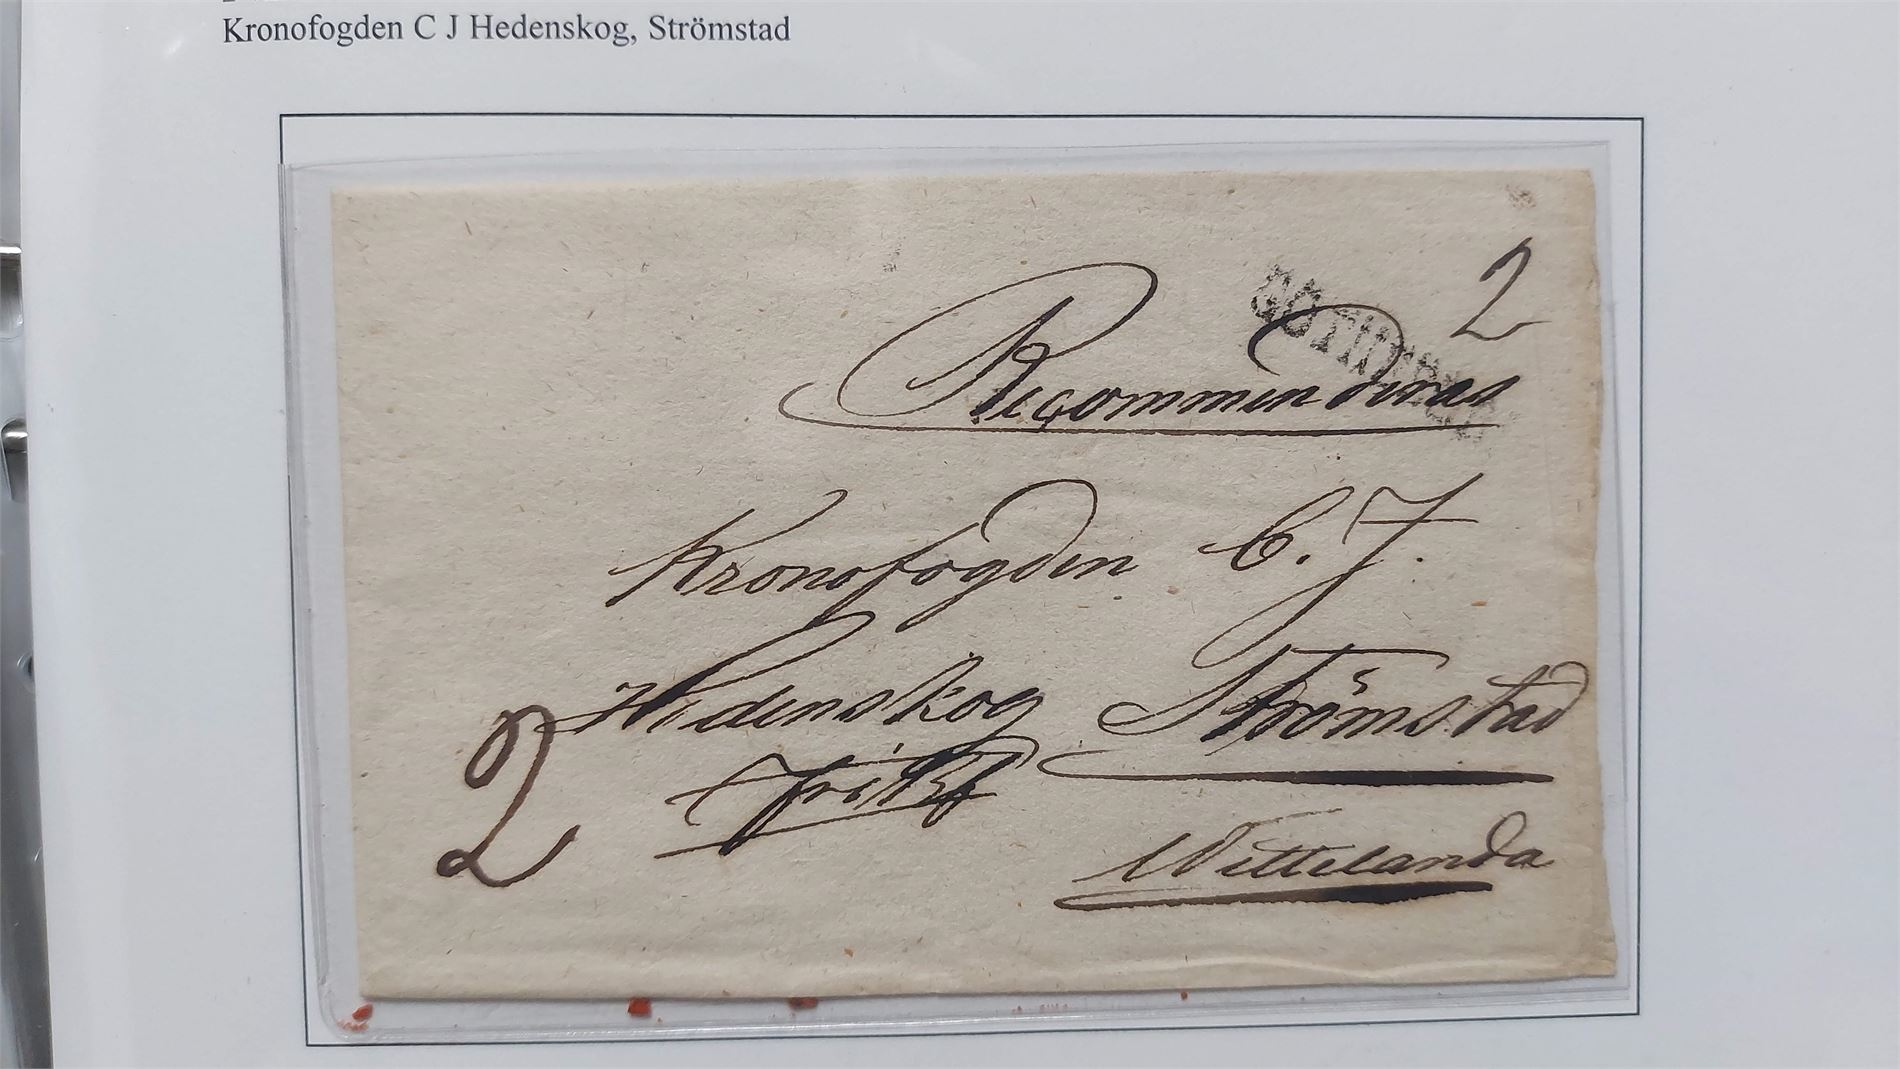 Kronofogden C J Hedenskog, Strömstad
2
GÖTHEBORG
Recommenderas
Kronofogden C. J.
Hedenskog Strömstad
2 frikt
Wettelanda